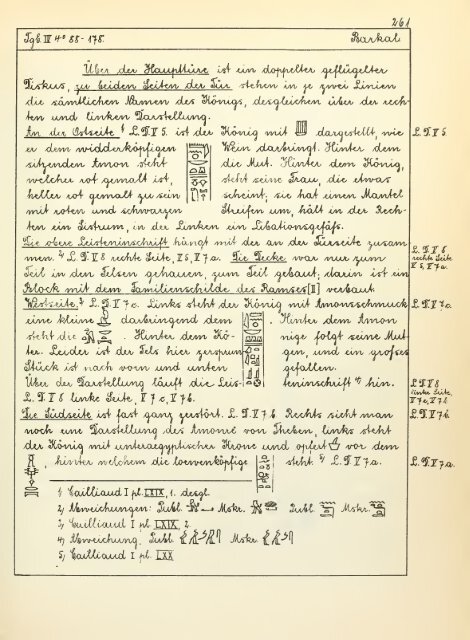 261
Tgb. III 4° 88-178. Barkal
Über der Haupttüre ist ein doppelter geflügelter
Diskus, zu beiden Seiten der Tür stehen in je zwei Linien
die sämtlichen Namen des Königs, desgleichen über der rech-
ten und linken Darstellung.
An der Ostseite 1) L. D. V 5. ist der König mit dargestellt, wie L. D. V 5
er dem widderköpfigen Wein darbringt. Hinter dem
sitzenden Amon steht die Mut. Hinter dem König,
welcher rot gemalt ist, steht seine Frau, die etwas
heller rot gemalt zu sein scheint, sie hat einen Mantel
mit roten und schwarzen Streifen um, hält in der Rech-
ten ein Sistrum, in der Linken ein Libationsgefäfs.
Die obere Leisteninschrift hängt mit der an der Türseite zusam
men. 2) L. D. V 8 rechte Seite, V 5, V 7a. Die Decke war nur zum L. D. V 8
rechte Seite
V 5, V 7a.
Teil in den Felsen gehauen, zum Teil gebaut; darin ist ein
Block mit dem Familienschilde des Ramses [II] verbaut.
Westseite. 3) L. D. V 7c. Links steht der König mit Amonsschmuck L. D. V 7c.
eine kleine darbringend dem . Hinter dem Amon
steht die . Hinter dem Kö- nige folgt seine Mut-
ter. Leider ist der Fels hier zersprun- gen, und ein grofses
Stück ist nach vorn und unten gefallen.
Über der Darstellung läuft die Leis- teninschrift 4) hin. L. D. V 8
linke Seite,
V 7c, V 7b
L. D. V 8 linke Seite, V 7c, V 7b.
Die Südseite ist fast ganz zerstört. L. D. V 7b Rechts sieht man L. D. V 7b.
noch eine Darstellung des Amonrê von Theben, links steht
der König mit unteraegyptischer Krone und opfert vor dem
, hinter welchem die loewenköpfige steht. 5) L. D. V 7a. L. D. V 7a.
1) Cailliaud I pl. LXIX, 1. desgl.
2) Abweichungen: Publ. Mskr. Publ. Mskr.
3) Cailliaud I pl. LXIX, 2.
4) Abweichung: Publ. Mskr.
5) Cailliaud I pl. LXX